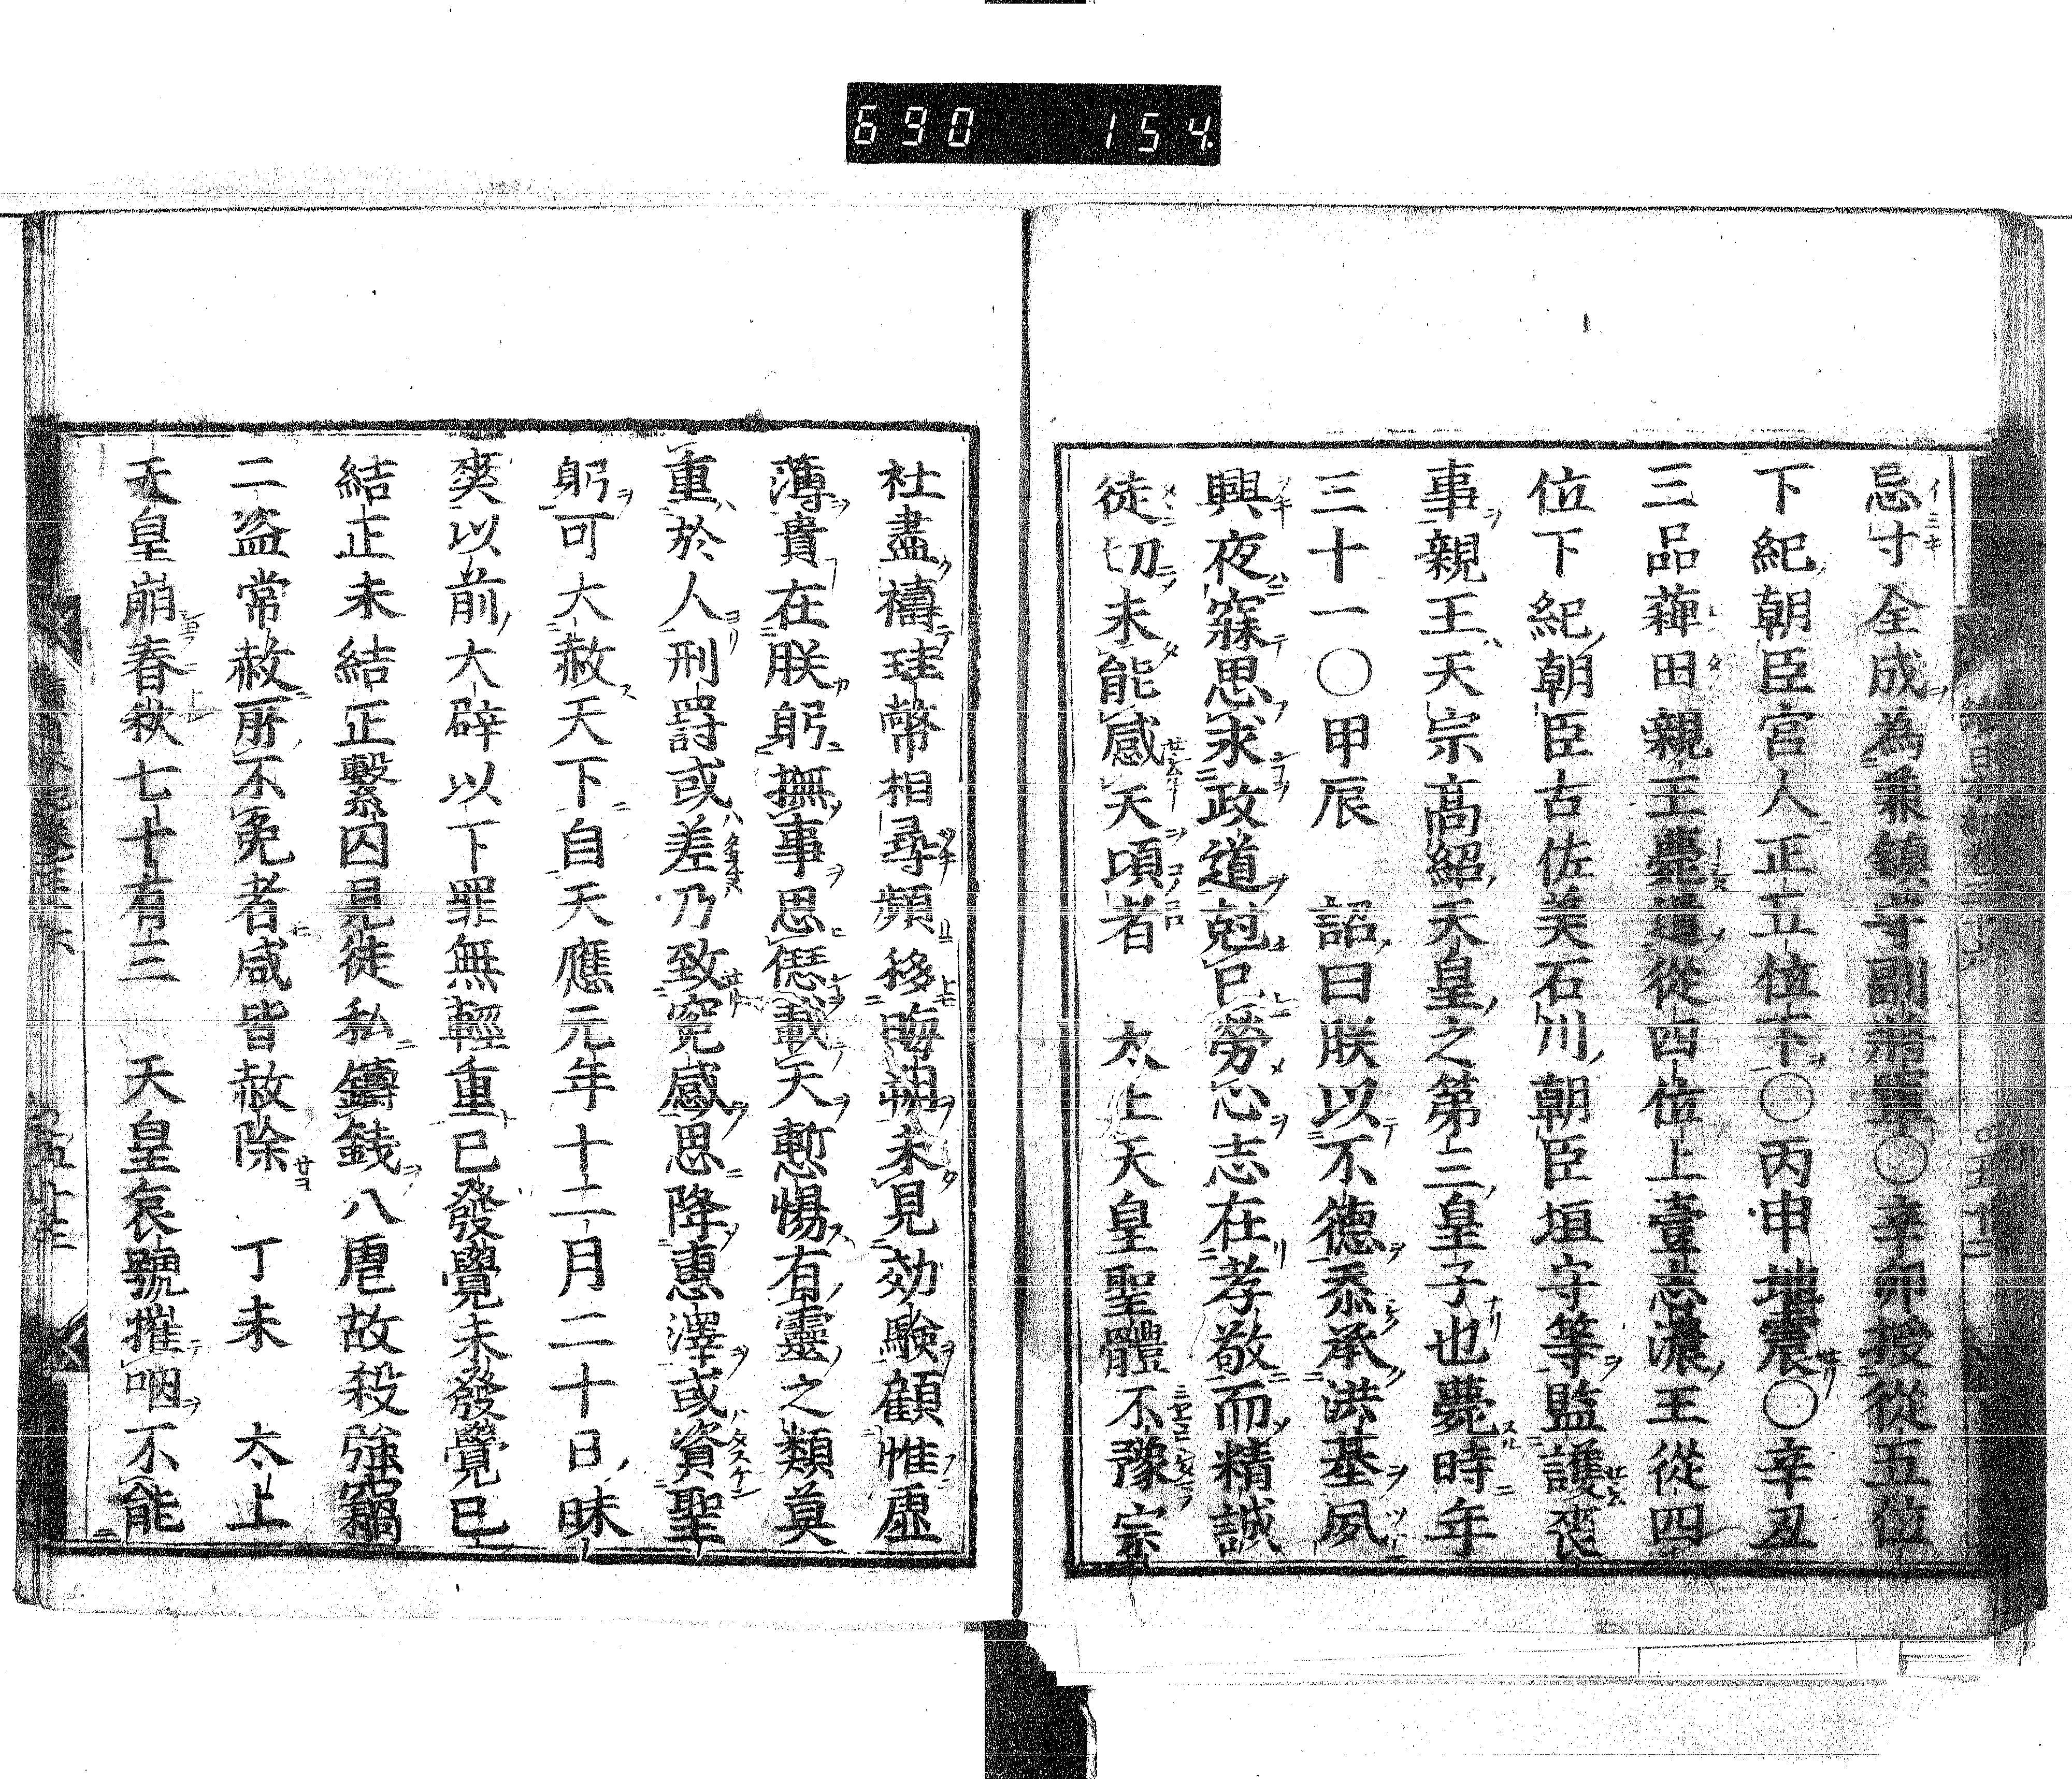 690 154
忌寸全成為兼鎮守副將軍○辛卯授從五位
下紀朝臣宮人正五位下○丙申地震○辛丑
三品薭田親王薨遣從四位上壹志濃王從四
位下紀朝臣古佐美石川朝臣垣守等監護喪
事親王天宗高紹天皇之第三皇子也薨時年
三十一○甲辰 詔曰朕以不德忝承洪基夙
興夜寐思求政道尅已勞心志在孝敬而精誠
徒切未能感天頃者 太上天皇聖體不豫宗
社盡禱珪幣相尋頻移晦朔未見効驗顧惟虛
薄責在朕躬撫事思愆載天慙惕有靈之類莫
重於人刑罸或差乃致寃感思降惠澤或資聖
躬可大赦天下自天應元年十二月二十日昧
爽以前大辟以下罪無輕重已發覺未發覺已
結正未結正繫囚見徒私鑄錢八虐故殺強竊
二盗常赦所不免者咸皆赦除 丁未 太上
天皇崩春秋七十有三 天皇哀號摧咽不能